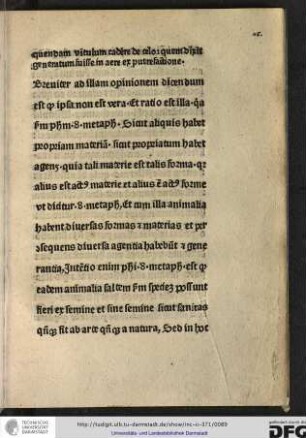 quendam vitulum cadere de celo: quem dixit
generatum fuisse in aere ex putrefactione.
Breuiter ad illam opinionem dicendum
est ꝙ ipsa non est vera. Et ratio est illa. q̄a
fm phm. 8. metaph. Sicut aliquis habet
propriam materiā. sicut propriatum habet
agens. quia tali materie est talis forma. qr
alius est actꝰ materie et alius ē actꝰ forme
vt dicitur. 8. metaph. Et cum illa animalia
habent diuersas formas ⁊ materias et per
ↄsequens diuersa agentia habebūt ⁊ gene
rantia, Intētio enim phi. 8. metaph. est ꝙ
eadem animalia saltem fm speciez possunt
fieri ex semine et sine semine sicut sanitas
qñqꝫ fit ab arte qñqꝫ a natura, Sed in hoc
TECHNISCHE UNIVERSITÄT DARMSTADT
http://tudigit.ulb.tu-darmstadt.de/show/inc-ii-371/0089
Universitäts- und Landesbibliothek Darmstadt
gefördert durch die
DFG